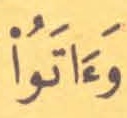 وَءَاتَوُا۟